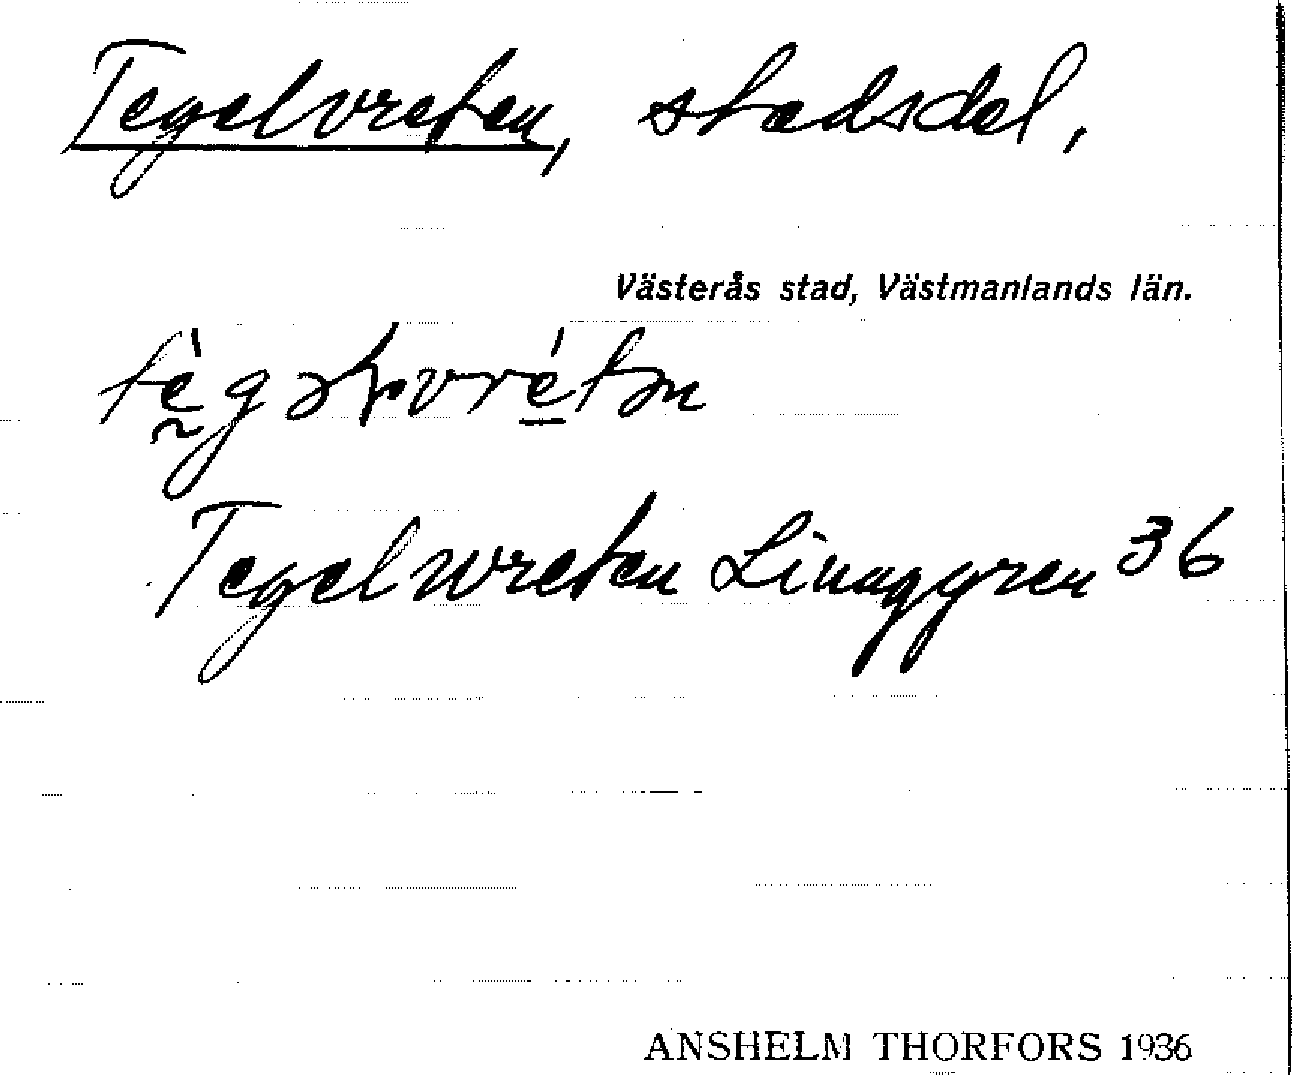 Tegelvreten, stadsdel,
Västerås stad, Västmanlands län.
Tegelwreten Linnggren 36
ANSHELM THORFORS 1936